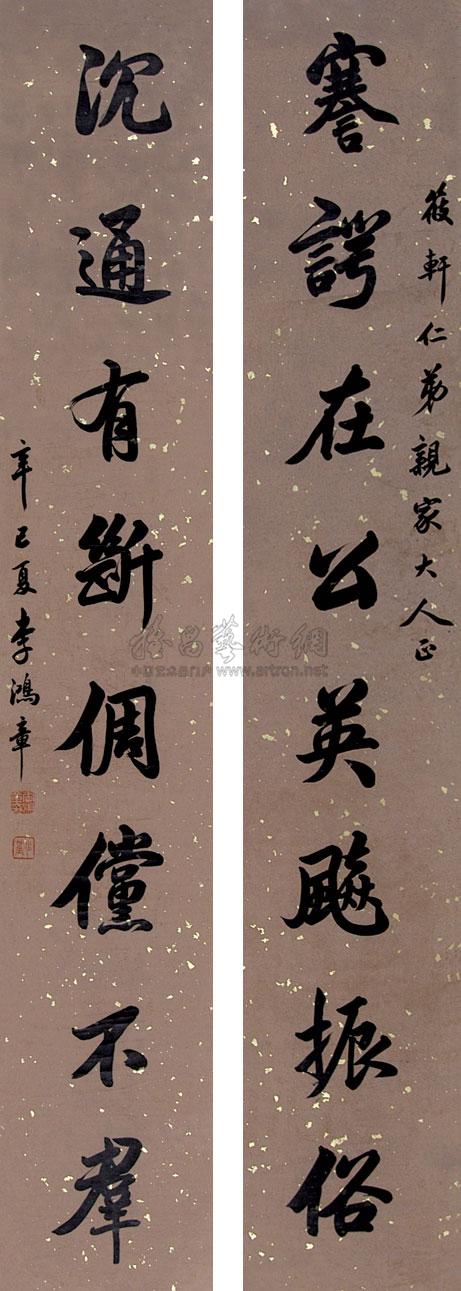 筱軒仁弟親家大人正
謇諤在公英飈振俗
沉通有斷倜儻不羣
辛巳夏李鴻章
雅昌藝術網
中国艺术品门户 www.artron.net